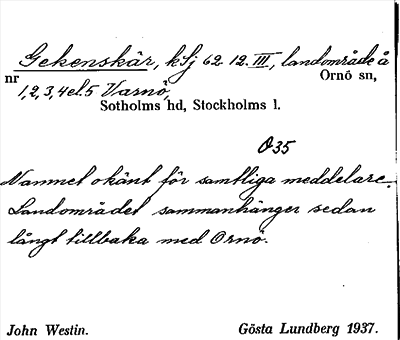 Gekenskär, kSj 62 12. III, landområde å
nr Ornö sn,
1,2,3,4 el. 5 Varnö,
Sotholms hd, Stockholms l.
O35
Namnet okänt för samtliga meddelare.
Landområdet sammanhänger sedan
långt tillbaka med Ornö.
John Westin. Gösta Lundberg 1937.